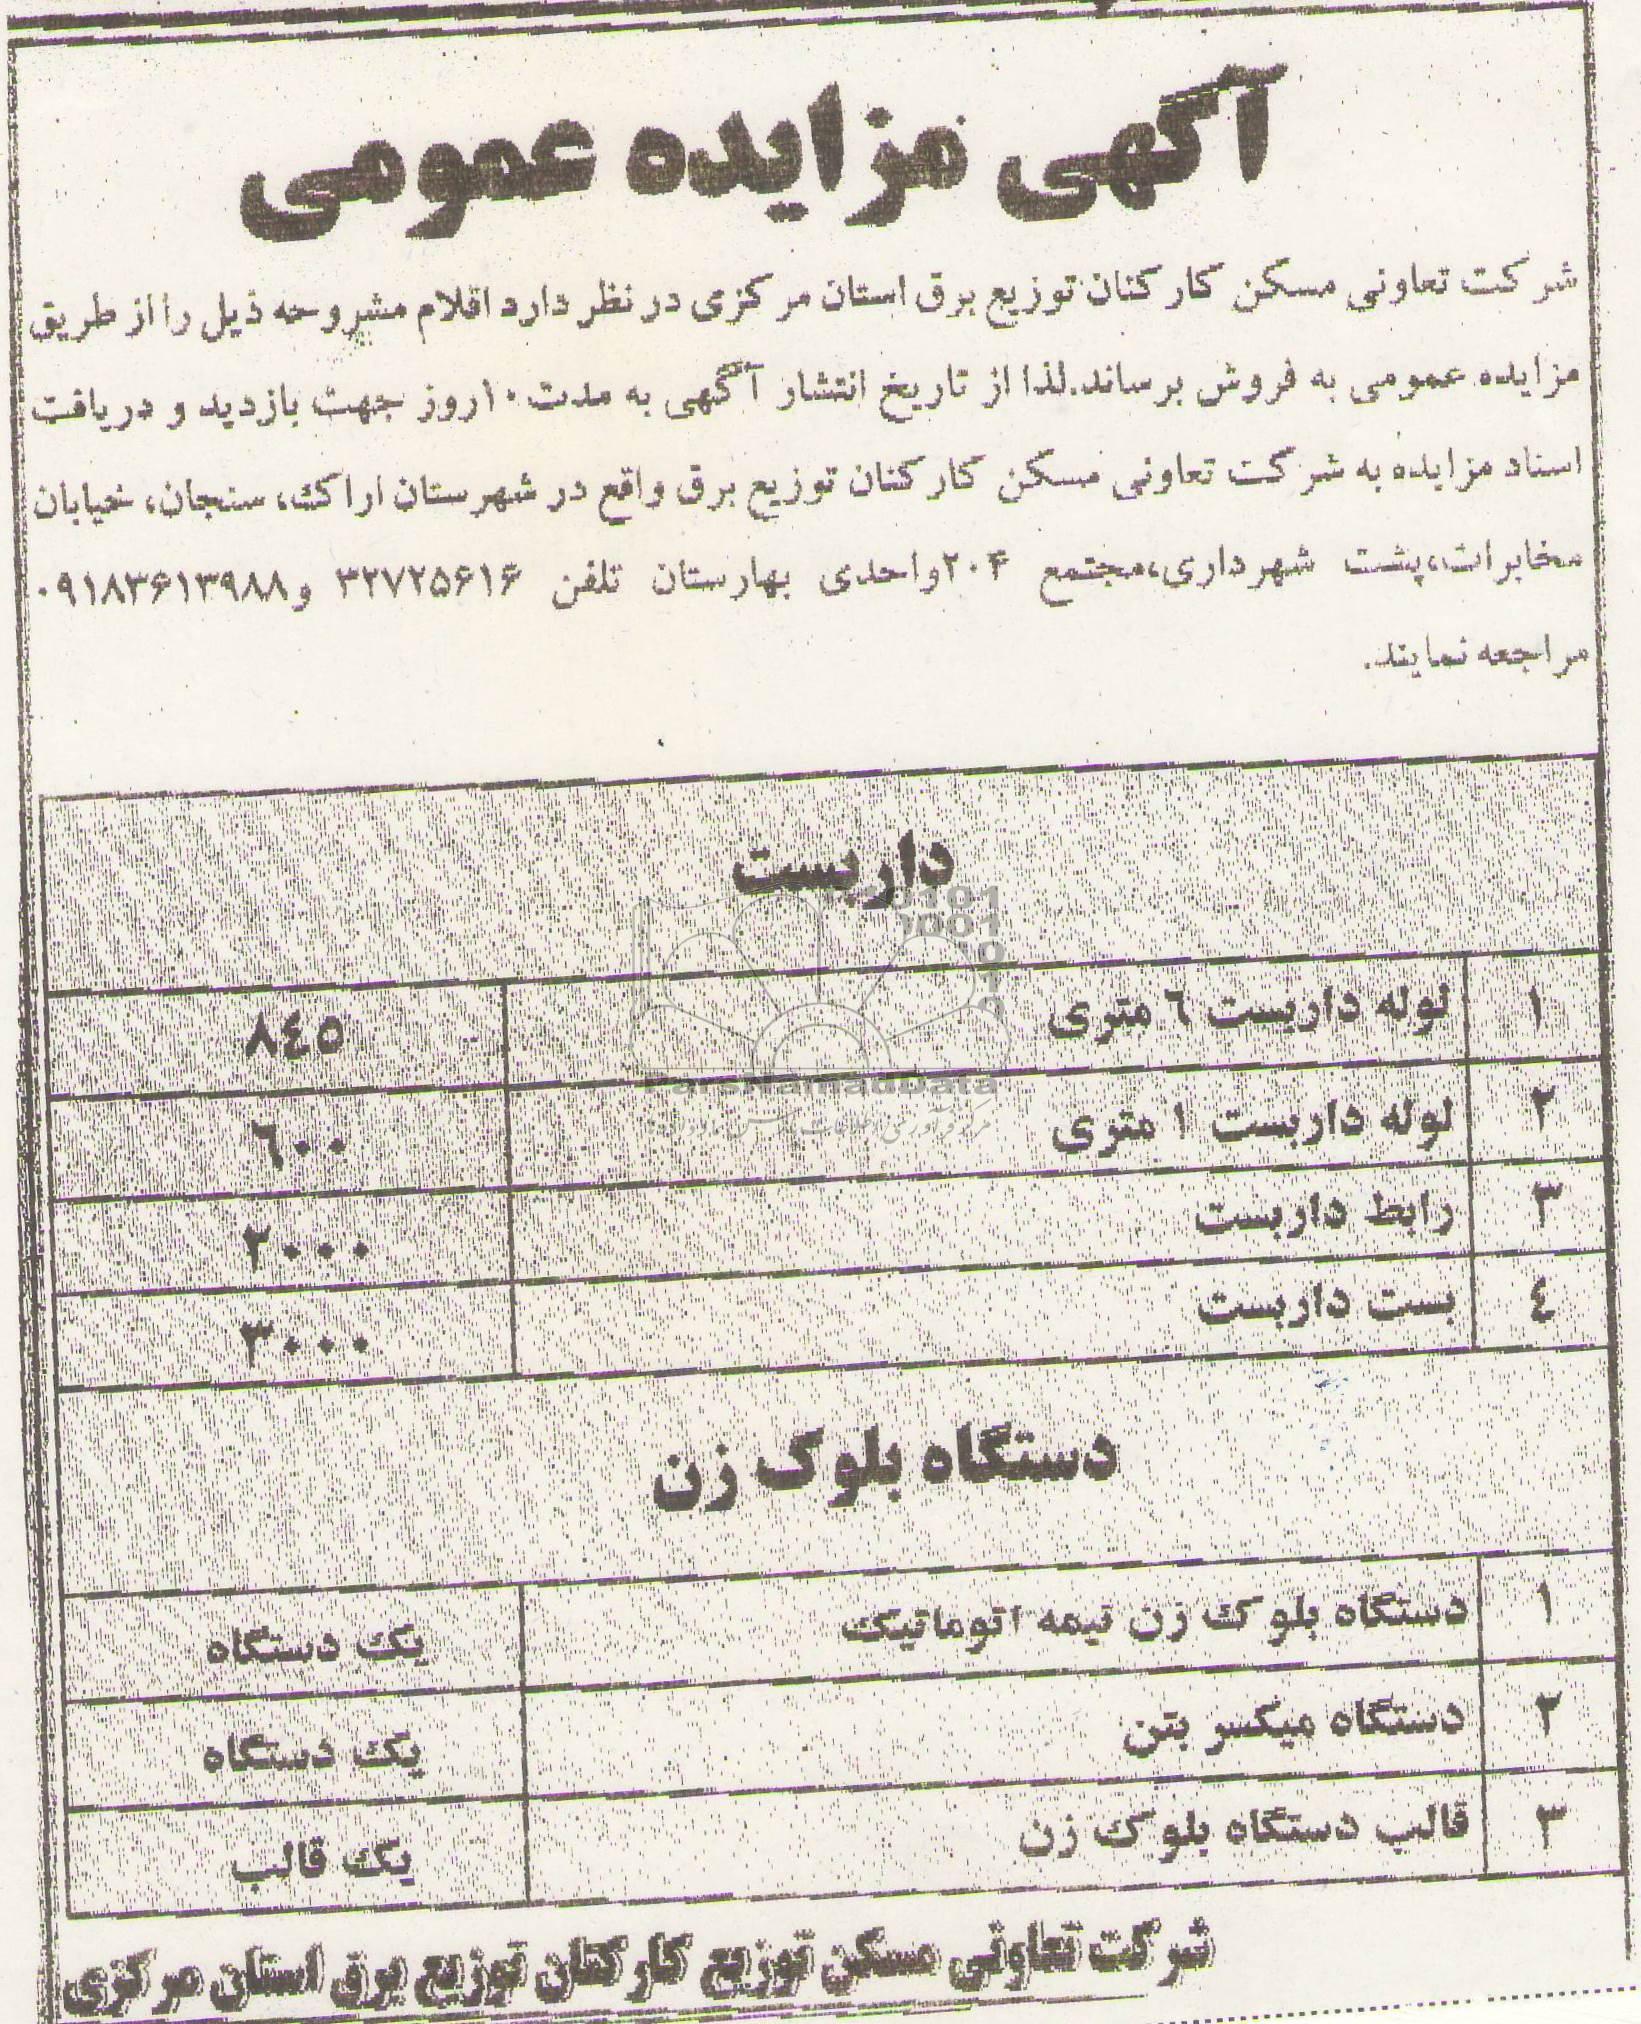 آگهی مزایده عمومی
شرکت تعاونی مسکن کارکنان توزیع برق استان مرکزی در نظر دارد اقلام مشروحه ذیل را از طریق
مزایده عمومی به فروش برساند.لذا از تاریخ انتشار آگهی به مدت ۱۰روز جهت بازدید و دریافت
اسناد مزایده به شرکت تعاونی مسکن کارکنان توزیع برق واقع در شهرستان اراک، سنجان، خیابان
مخابرات،پشت شهرداری،مجتمع ۲۰۴واحدی بهارستان تلفن ۳۲۷۲۵۶۱۶ و۰۹۱۸۳۶۱۳۹۸۸
مراجعه نمایند.
داربست
۱ لوله داربست ٦ متری ٨٤٥
۲ لوله داربست ۱ متری ٦٠٠
۳ رابط داربست ۲۰۰۰
٤ بست داربست ۳۰۰۰
دستگاه بلوک زن
۱ دستگاه بلوک زن نیمه اتوماتیک یک دستگاه
۲ دستگاه میکسر بتن یک دستگاه
۳ قالب دستگاه بلوک زن یک قالب
شرکت تعاونی مسکن توزیع کارکنان توزیع برق استان مرکزی
ParsNamadData